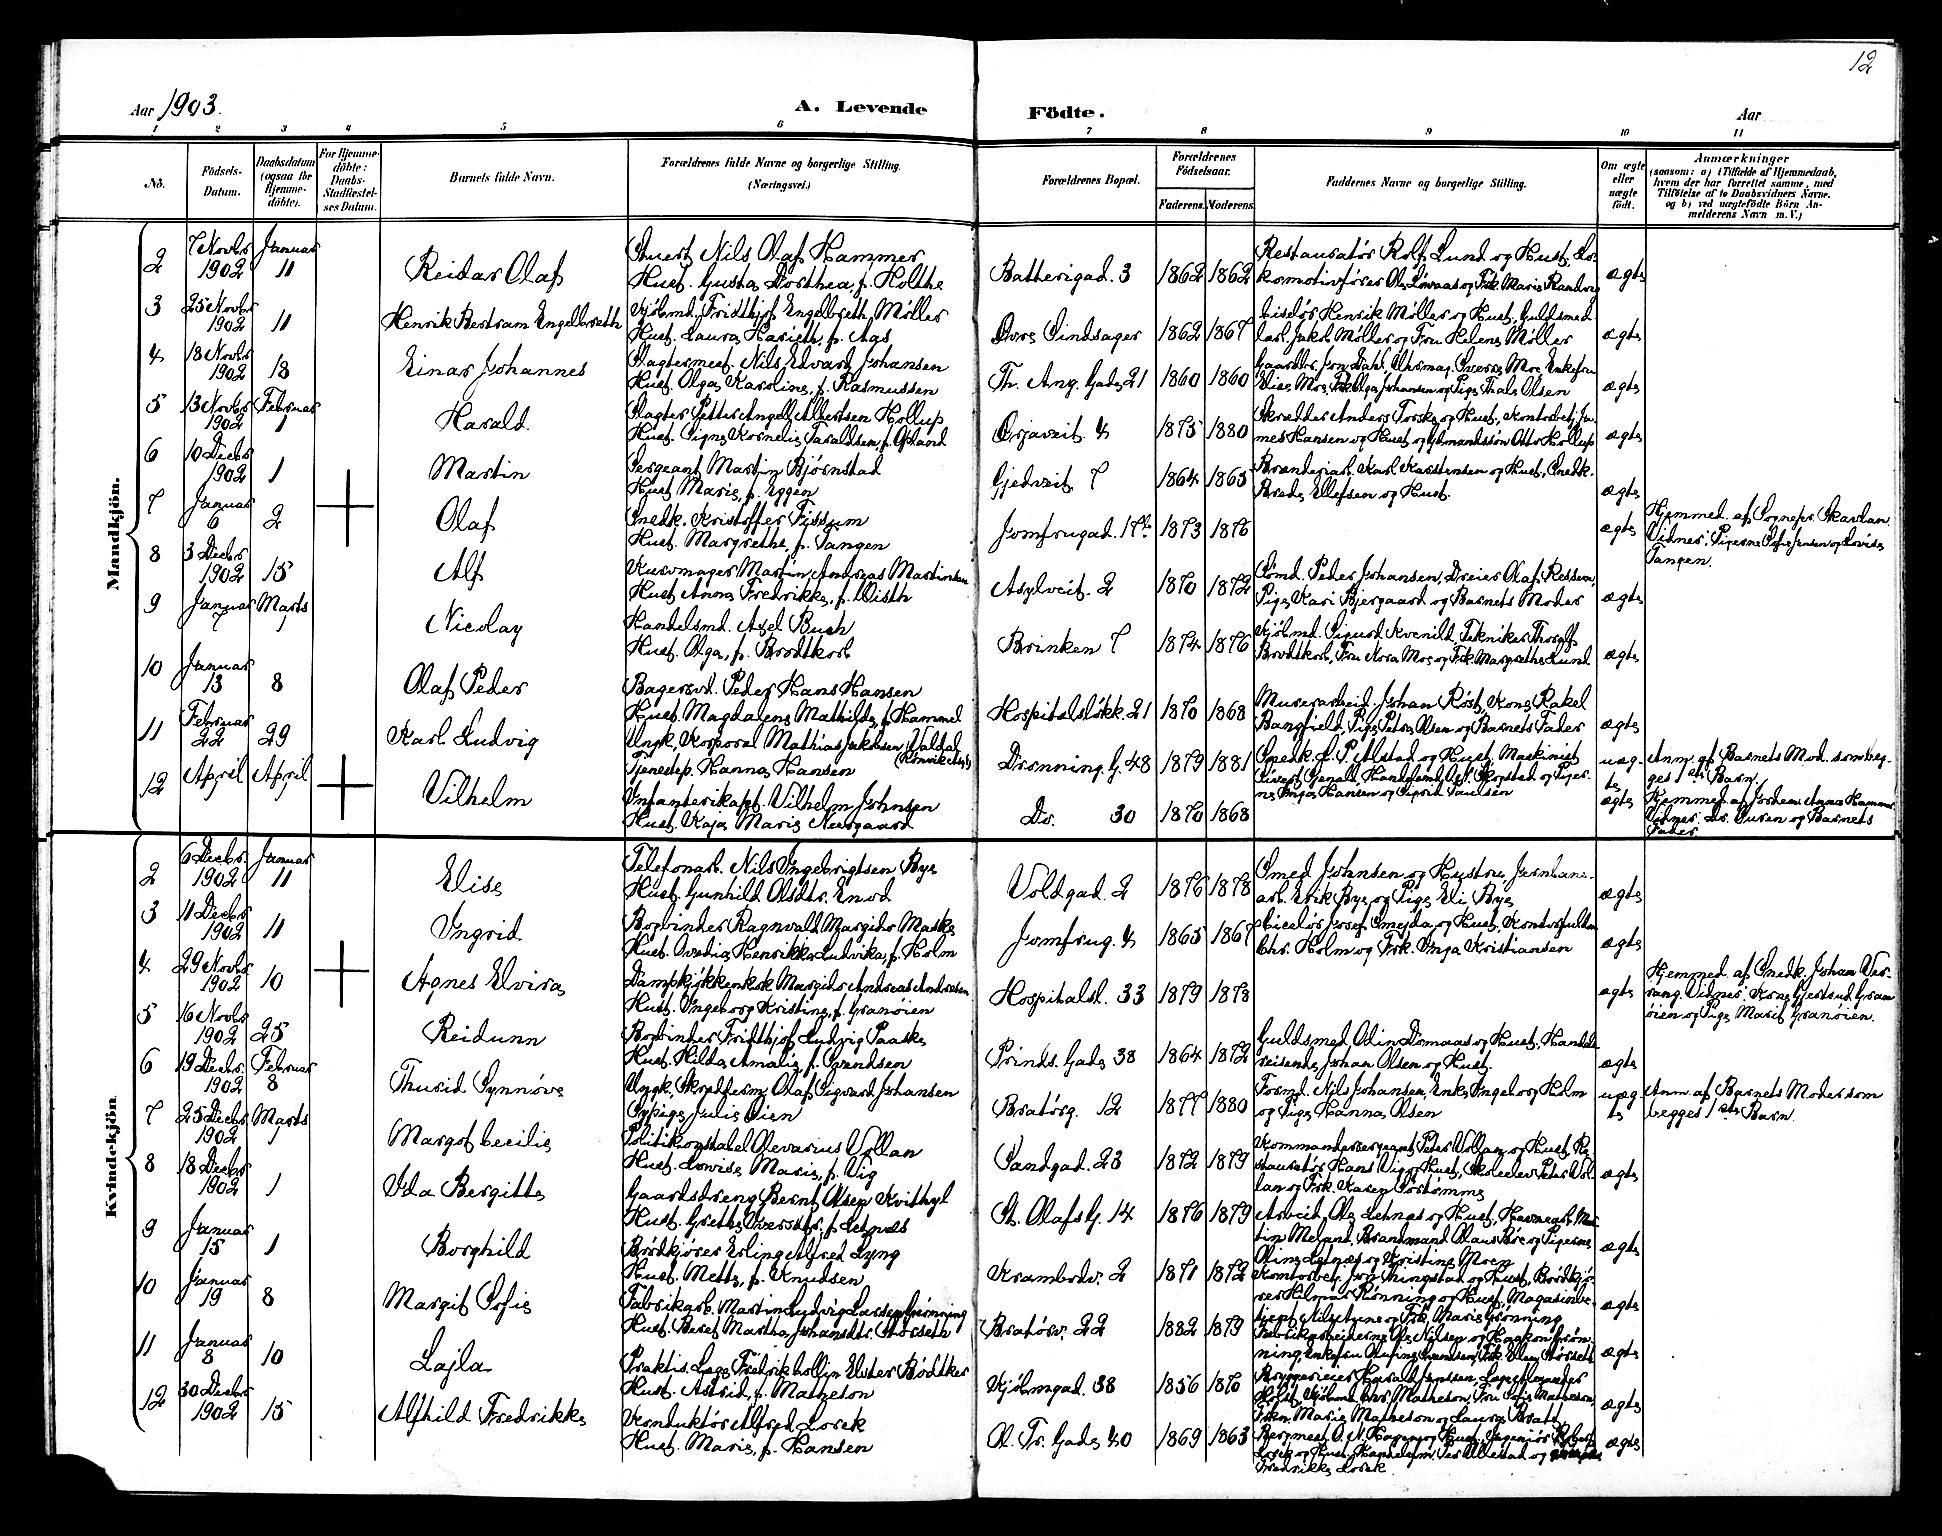 12
Aar 1903.
A. Levende Födte.
Aar
1 2 3 4 5 6 7 8 9 10 11
Nö.
Födsels-Datum.
Daabsdatum (ogsaa for Hjemme-döbte).
For Hjemme-döbte: Daabs-Stadfæstel-ses Datum.
Barnets fulde Navn.
Forældrenes fulde Navne og borgerlige Stilling.
(Næringsvei.)
Forældrenes Bopæl.
Forældrenes Födselsaar.
Faderens. Moderens.
Faddernes Navne og borgerlige Stilling.
Om ægte eller uægte födt.
Anmærkninger
(saasom: a) i Tilfælde af Hjemmedaab,
hvem der har forrettet samme, med
Tilföielse af to Daabsvidners Navne,
og b) ved uægtefödte Börn An-
melderens Navn m. V.)
Mandkjön.
2 7 Novbr 1902 Januar 11 Reidar Olaf
Stuert Nils Olaf Hammer
Hust. Gusta Dorthea, f. Holthe
Batterigad. 3 1862 1862
Restauratør Rolf Lund og Hust., Lo-
komotivfører Ole Løvaas og Frk. Marie Randvig
ægte
3 25 Novbr 1902 11 Henrik Bertram Engelbreth
Kjøbmd. Fridthjof Engelbreth Møller
Hust. Laura Hariette, f. Aas
Øvre Sindsager 1862 1867
Ciselør Henrik Møller og Hust., Guldsmed
Carl Jakob Møller og Fru Helene Møller
ægte
4 18 Novbr 1902 18 Einar Johannes
Slagtermest. Nils Edvard Johansen
Hust. Olga Karoline, f. Rasmussen
Th. Ang. Gade 21 1860 1860
Gaardbr. Jon Dahl, Uhrmag. Sverre Moe, Enkefru
Elise Moe, Frk. Olga Johansen og Pige Thale Olsen
ægte
5 13 Novbr 1902 Februar 1 Harald
Slagter Petter Angell Albertsen Hollup
Hust. Signe Kornelie Taraldsen, f. Opland
Ørjaveit. 4 1875 1880
Skrædder Anders Forske og Hust., Kontorbetj. Ja-
mes Hansen og Hust. og Gbmandssøn Otto Hollup
ægte
6 10 Decbr 1902 1 Martin
Sergeant Martin Bjørnstad
Hust. Marie, f. Eggen
Gjedveit. 7 1864 1865
Brænderiarb. Karl Karstensen og Hust., Snedk.
Brede Ellefsen og Hust.
ægte
7 Januar 6 2 Olaf
Snedk. Kristoffer Fissum
Hust. Margrethe, f. Tangen
Jomfrugad. 17b 1873 1876
ægte
Hjemmed. af Sognepr. Skavlan.
Vidner: Pigerne Sofie Jensen og Lovise
Tangen.
8 3 Decbr 1902 15 Alf
Kurvmager Martin Andreas Martinsen
Hust. Anna Fredrikke, f. Visth
Asylveit. 2 1870 1872
Sømd. Peder Johansen, Dreier Olaf Ressem,
Pige Kari Bjergaard og Barnets Moder
ægte
9 Januar 7 Marts 1 Nicolay
Handelsmd. Axel Buch
Hust. Olga, f. Brodtkorb
Brinken 7 1874 1876
Kjøbmd. Sigurd Kvenild, Tekniker Thoralf
Brodtkorb, Fru Nora Moe og Frk. Margrethe Lund
ægte
10 Januar 13 8 Olaf Peder
Bagersvd. Peder Hans Hansen
Hust. Magdalene Mathilde, f. Hammel
Hospitalsløkk. 21 1870 1868
Murerarbeid. Johan Røst, Kone Rakel
Bangfield, Pige Petra Olsen og Barnets Fader
ægte
11 Februar 22 29 Karl Ludvig
Ungk. Korporal Mathias Jakobsen Valdal
Tjenestep. Hanna Hansen
Dronning. G. 48 1879 1881
Snedk. P. Alstad og Hust., Maskinist
Sivert Genall, Handelsmd. Skogstad og Piger-
ne Inga Hansen og Sigrid Paulsen
uæg-
te
Anm. af Barnets Mod. som beg-
ges 1ste Barn.
12 April 1 April 1 Vilhelm
Infanterikapt. Vilhelm Johnsen
Hust. Kaja Marie Neergaard
Do. 30 1870 1868
ægte
Hjemmed. af Jordem. Anna Hammer
Vidner: Dr. Suren og Barnets
Fader
Kvindekjön.
2 6 Decbr. 1902 Januar 11 Elise
Telefonarb. Nils Ingebrigtsen Bye
Hust. Gunhild Olsdtr. Enod
Voldgad. 2 1876 1878
Smed Johnsen og Hustru, Jernban-
arb. Erik Bye og Pige Eli Bye
ægte
3 11 Decbr 1902 11 Ingrid
Bogbinder Ragnvald Margido Matke
Hust. Ovedia Henrikke Ludvika, f. Holm
Jomfrug. 4 1865 1867
Ciselør Josef Smejda og Hust., Kontorfuldm.
Chr. Holm og Frk. Inga Kristiansen
ægte
4 29 Novbr 1902 10 Agnes Elvira
Dampkjøkkenkok Margido Andreas Andresen
Hust. Ingeborg Kristine, f. Granøien
Hospitalsl. 33 1879 1878
ægte
Hjemmed. af Snedk. Johan Ver-
rang. Vidner: Kone Gjertrud Gran-
øien og Pige Marit Granøien.
5 16 Novbr 1902 25 Reidunn
Bogbinder Fridthjof Ludvig Paaske
Hust. Hilda Amalie, f. Svendsen
Prinds. Gade 38 1864 1872
Guldsmed Odin Domaas og Hust., Handels-
reisende Johan Olsen og Hust.
ægte
6 19 Decbr. 1902 Februar 8 Thurid Synnöve
Ungk. Skrædderm. Olaf Sigvard Johansen
Sypige Julie Øien
Bratörg. 12 1877 1880
Formd. Nils Johansen, Enke Ingeborg Holm
og Pige Hanna Olsen
uæg-
te
Anm. af Barnets Moder som
begges 1ste Barn.
7 25 Decbr 1902 Marts 1 Margot Cecilie
Politikonstabel Olevarius Vollan
Hust. Lovise Marie, f. Vig
Sandgad. 23 1872 1879
Kommandersergeant Peter Vollan og Hust., Re-
stauratør Hans Vig og Hust., Skoleelev Peter Vol-
lan og Frk. Karen Sørtømme
ægte
8 18 Decbr 1902 1 Ida Bergitte
Gaardsdreng Bernt Olsen Kvithyl
Hust. Grethe Iversdtr., f. Letnæs
St. Olafs G. 14 1876 1879
Arbeid. Ole Letnæs og Hust., Havnearb. Mar-
tin Meland, Brandmand Olaus Bye og Pigerne
Oline Letnæs og Kristine Moen
ægte
9 Januar 15 1 Borghild
Brödkjører Erling Alfred Lyng
Hust. Mette, f. Knudsen
Krambodv. 2 1871 1872
Kontorbetj. Jon Thingstad og Hust., Brödkjø-
rer Hilmar Rønning og Hust., Magasinbe-
tjent Nils Tyrre og Frk. Marie Grønning
ægte
10 Januar 19 8 Margit Sofie
Fabrikarb. Martin Ludvig Larsen Grønning
Hust. Beret Martha Johansdtr. Størseth
Bratörv. 22 1882 1879
Fabrikarbeiderne Ole Nilsen og Haakon Grøn-
ning, Enkefru Olufine Svendsen, Frk. Ellen Størseth
ægte
11 Januar 8 10 Lajla
Praktis. Læge Fredrik Collin Elster Bödtker
Hust. Astrid, f. Matheson
Kjöbmgad. 38 1856 1870
Bryggerieier Harald Jenssen, Læge Leganger
Holst, Kjöbmd. Chr. Matheson, Fru Sofie Matheson,
Frkn. Marie Matheson og Laura Bratt
ægte
12 30 Decbr 1902 15 Alfhild Fredrikke
Konduktör Alfred Lorck
Hust. Marie, f. Hansen
Ol. Tr. Gade 40 1869 1863
Bergmest. O. N. Hagen og Hust., Ingeniør Robert
Lorck og Hust., Handelsm. Per Ullestad og
Fredrikke Lorck
ægte